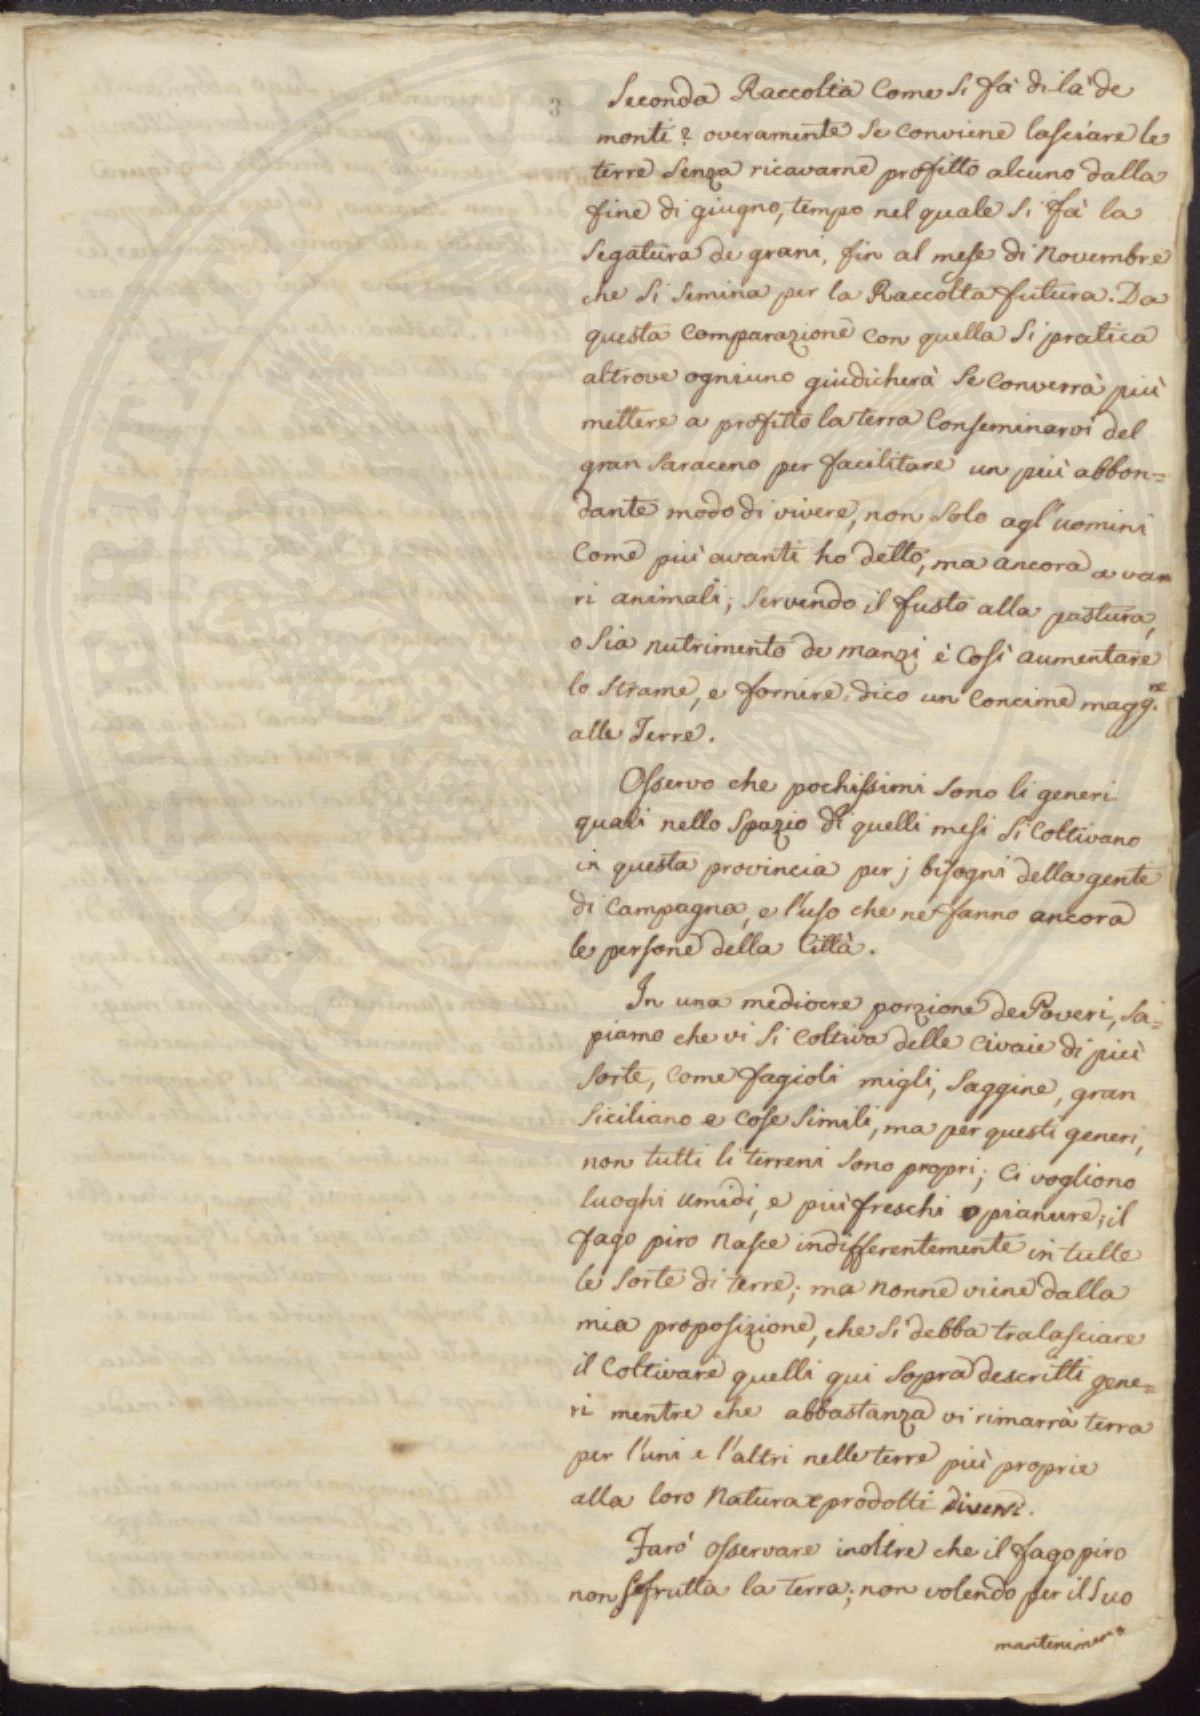 3
Seconda Raccolta come si fà di là de
monti? overamente se conviene lasciare le
terre senza ricavarne profitto alcuno dalla
fine di giugno, tempo nel quale si fà la
segatura de grani, fin al mese di Novembre
che si semina per la Raccolta futura. Da
questa comparazione con quella si pratica
altrove ogniuno giudicherà se converrà più
mettere a profitto la terra conseminarvi del
gran saraceno per facilitare un più abbon=
dante modo di vivere, non solo agl'uomini
come più avanti ho detto, ma ancora a va
ri animali; servendo il fusto alla pastura,
o sia nutrimento de manzi è così aumentare
lo strame, e fornire dico un concime magg.re
alle Terre.
Osservo che pochissimi sono li generi
quali nello spazio di quelli mesi si coltivano
in questa provincia per j bisogni della gente
di campagna, e l'uso che ne fanno ancora
le persone della Città.
In una mediocre porzione de Poveri, sa=
piamo che vi si coltiva delle civaie di più
sorte, come fagioli migli, saggine, gran
siciliano e cose simili, ma per questi generi,
non tutti li terreni sono propri; ci vogliono
luoghi umidi, e più freschi o pianure; il
fago piro nasce indifferentemente in tutte
le sorte di terre; ma nonne viene dalla
mia proposizione, che si debba tralasciare
il coltivare quelli qui sopra descritti gene=
ri mentre che abbastanza vi rimarrà terra
per l'uni e l'altri nelle terre più proprie
alla loro Natura e prodotti diversi.
Farò osservare inoltre che il fago piro
non sfrutta la terra; non volendo per il suo